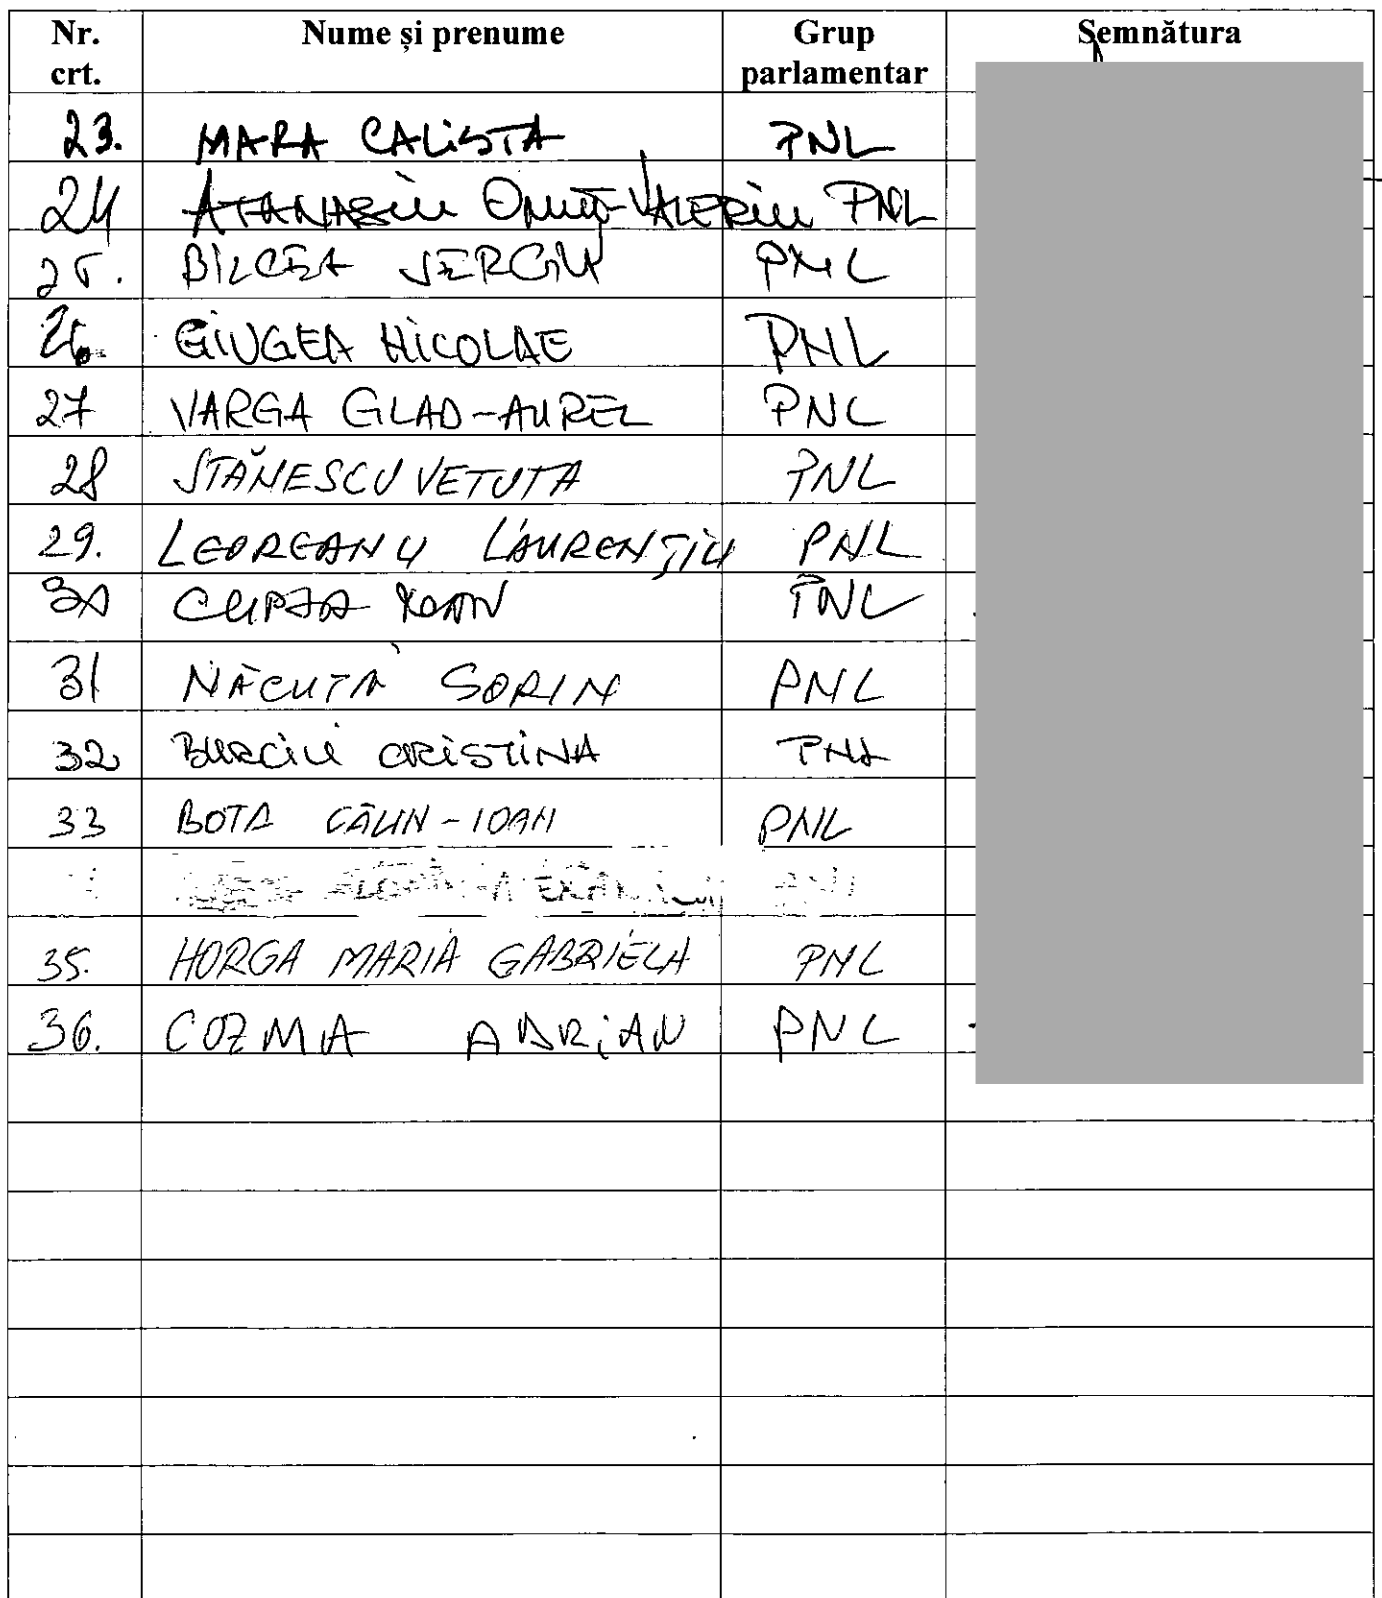 Nr. crt. Nume și prenume Grup parlamentar Semnătura
23. MARA CALISTA PNL
24 ATANASIU IONUȚ-VALERIU PNL
25. BILCEA SERGIU PNL
26. GIUGEA NICOLAE PNL
27 VARGA GLAD-AUREL PNL
28 STĂNESCU VETUTA PNL
29. LEOREANU LAURENȚIU PNL
30 CUPȘA IOAN PNL
31 NĂCUȚĂ SORIN PNL
32 BURCIU CRISTINA PNL
33 BOTA CĂLIN-IOAN PNL
35. HORGA MARIA GABRIELA PNL
36. COZMA ADRIAN PNL